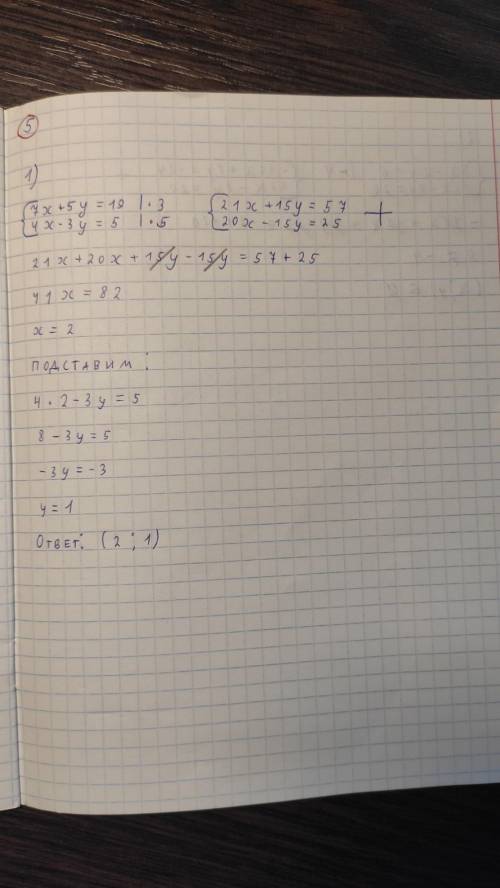 5
1)
{7x+5y=19 | · 3 {21x+15y=57 +
{4x-3y=5 | · 5 {20x-15y=25
21x+20x+15y-15y=57+25
41x=82
x=2
ПОДСТАВИМ:
4·2-3y=5
8-3y=5
-3y=-3
y=1
Ответ: (2;1)